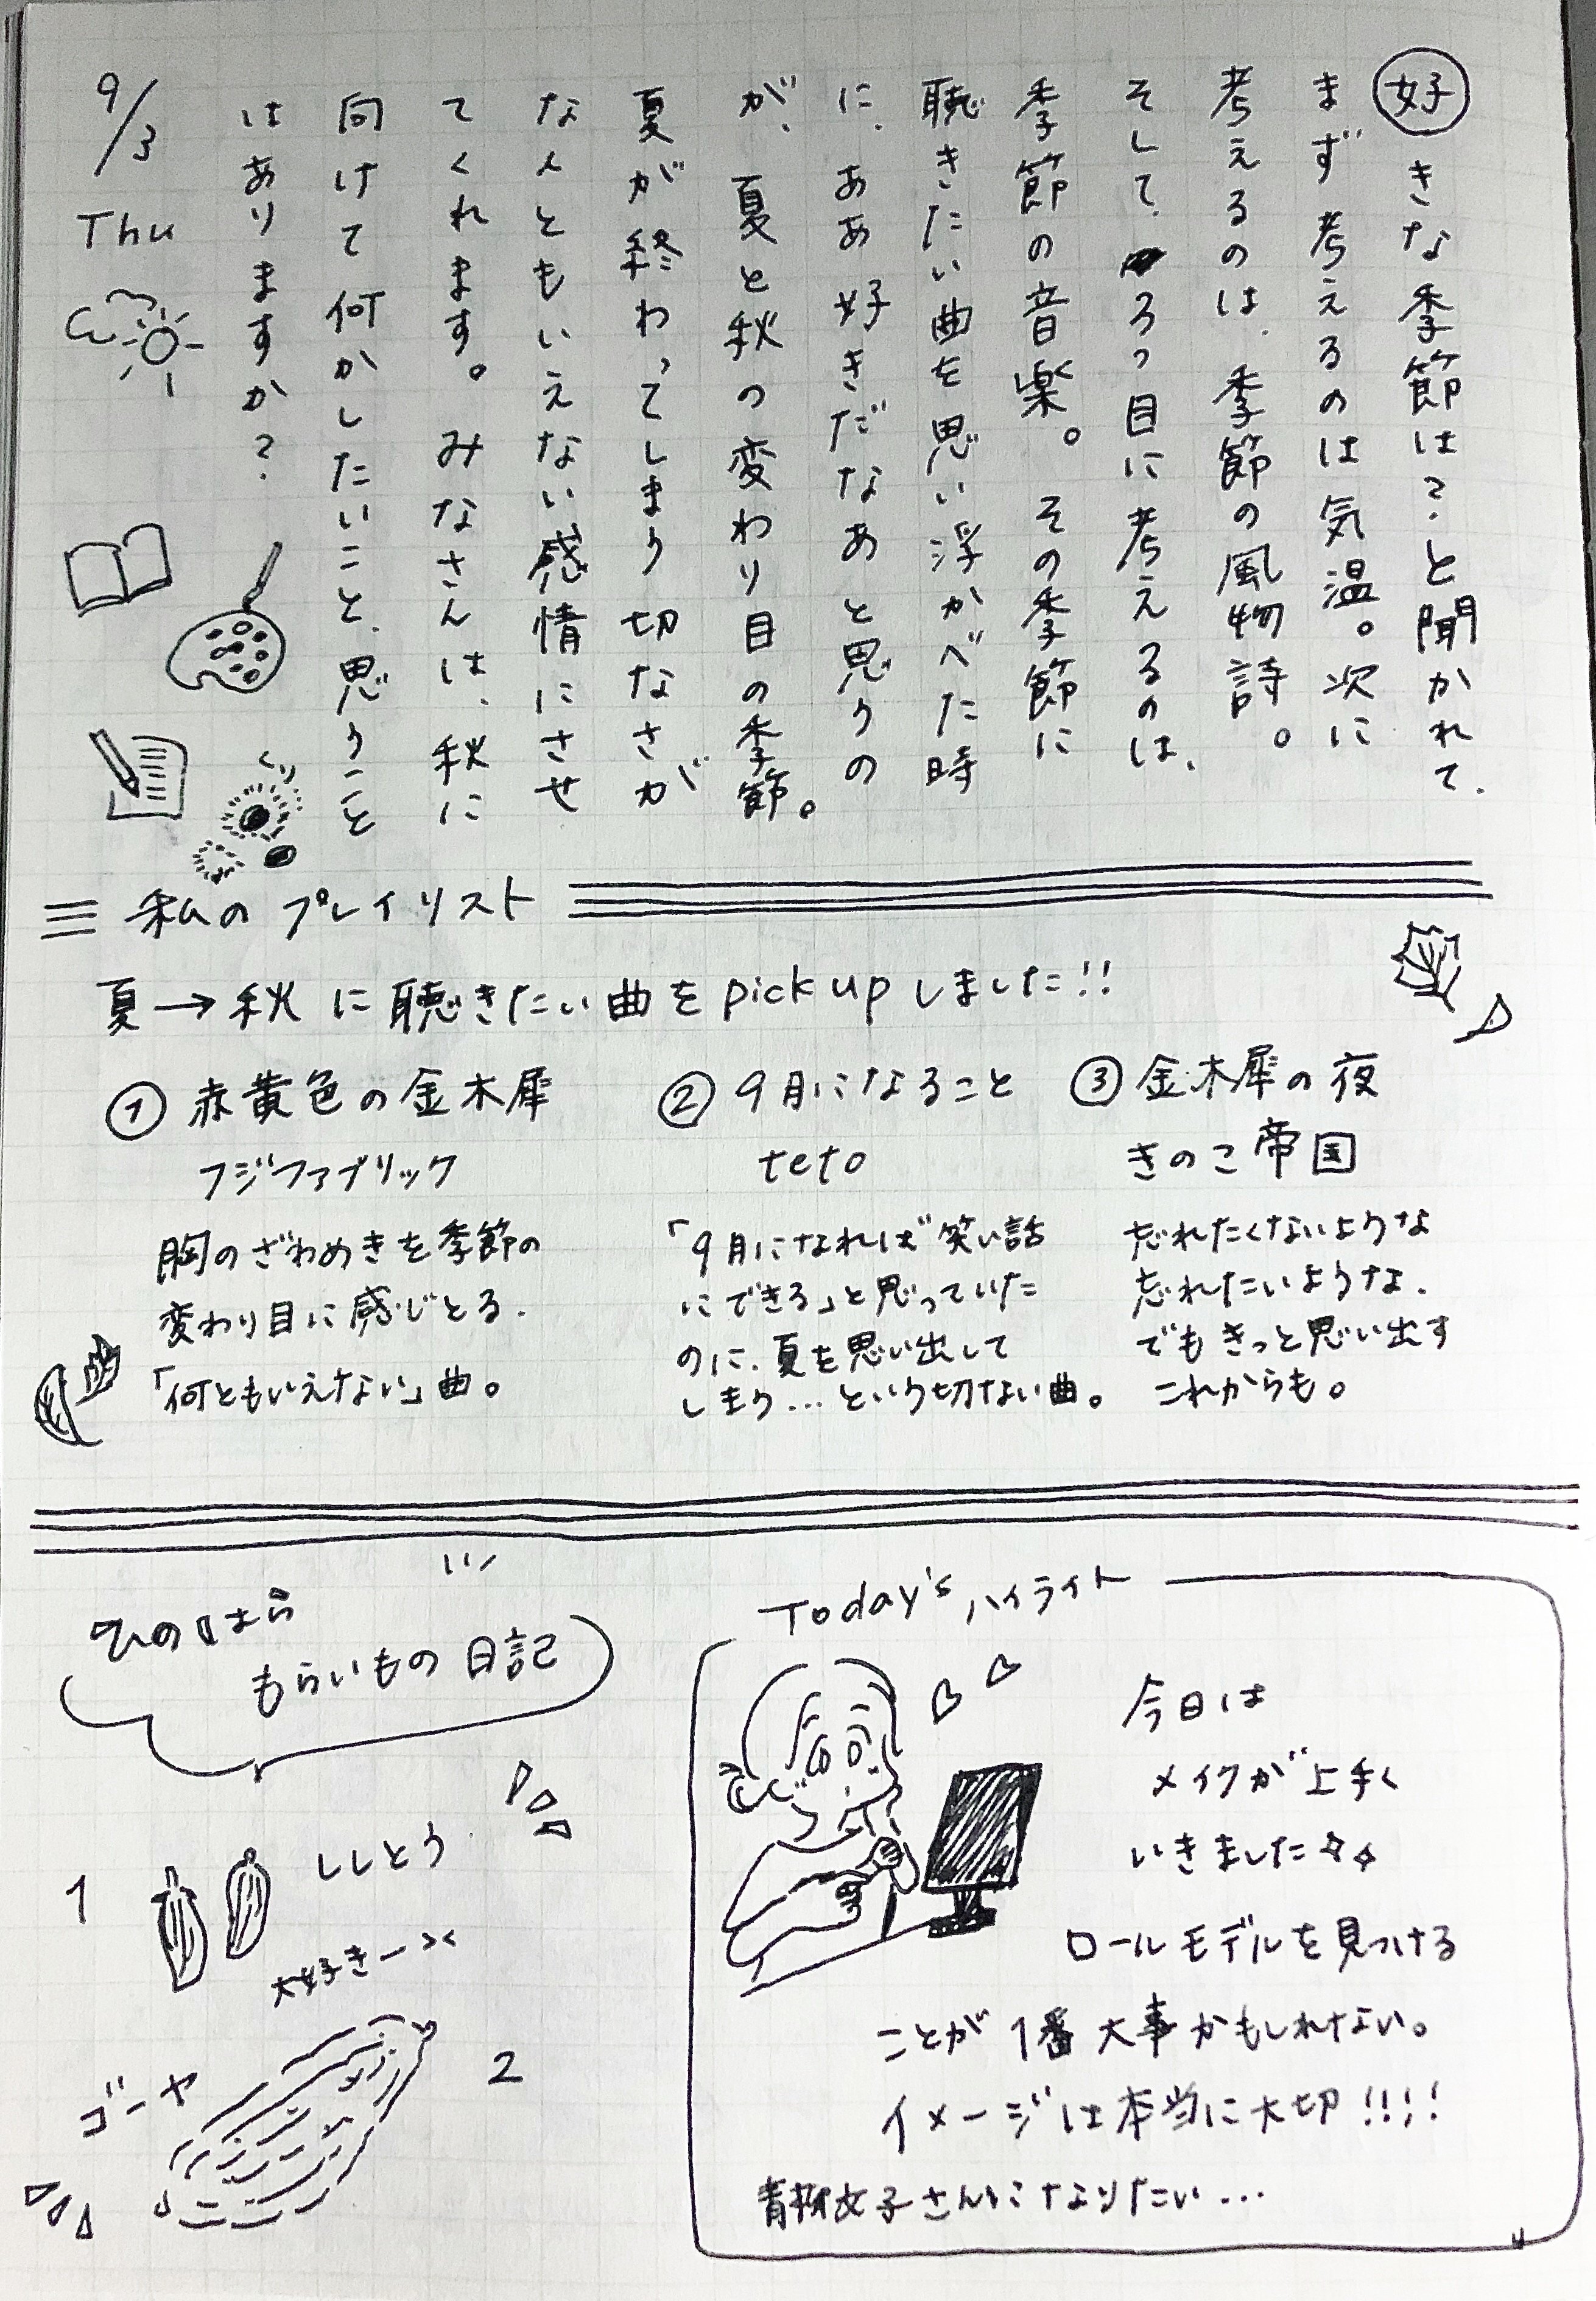 9/3
Thu
好きな季節は?と聞かれて、
まず考えるのは気温。次に
考えるのは、季節の風物詩。
そして、3つ目に考えるのは、
季節の音楽。その季節に
聴きたい曲を思い浮かべた時
に、ああ好きだなあと思うの
が、夏と秋の変わり目の季節。
夏が終わってしまう切なさが
なんともいえない感情にさせ
てくれます。みなさんは、秋に
向けて何かしたいこと、思うこと
はありますか?
私のプレイリスト
夏→秋に聴きたい曲をpick upしました!!
① 赤黄色の金木犀
フジファブリック
胸のざわめきを季節の
変わり目に感じとる.
「何ともいえない」曲。
② 9月になること
teto
「9月になれば笑い話
にできる」と思っていた
のに、夏を思い出して
しまう…という切ない曲。
③ 金木犀の夜
きのこ帝国
忘れたくないような
忘れたいような.
でもきっと思い出す
これからも。
ひのはら
もらいもの日記
1
ししとう
大好きー
ゴーヤ
2
Today's ハイライト
今日は
メイクが上手く
いきました
ロールモデルを見つける
ことが1番大事かもしれない。
イメージは本当に大切!!!!
青柳文子さんになりたい…